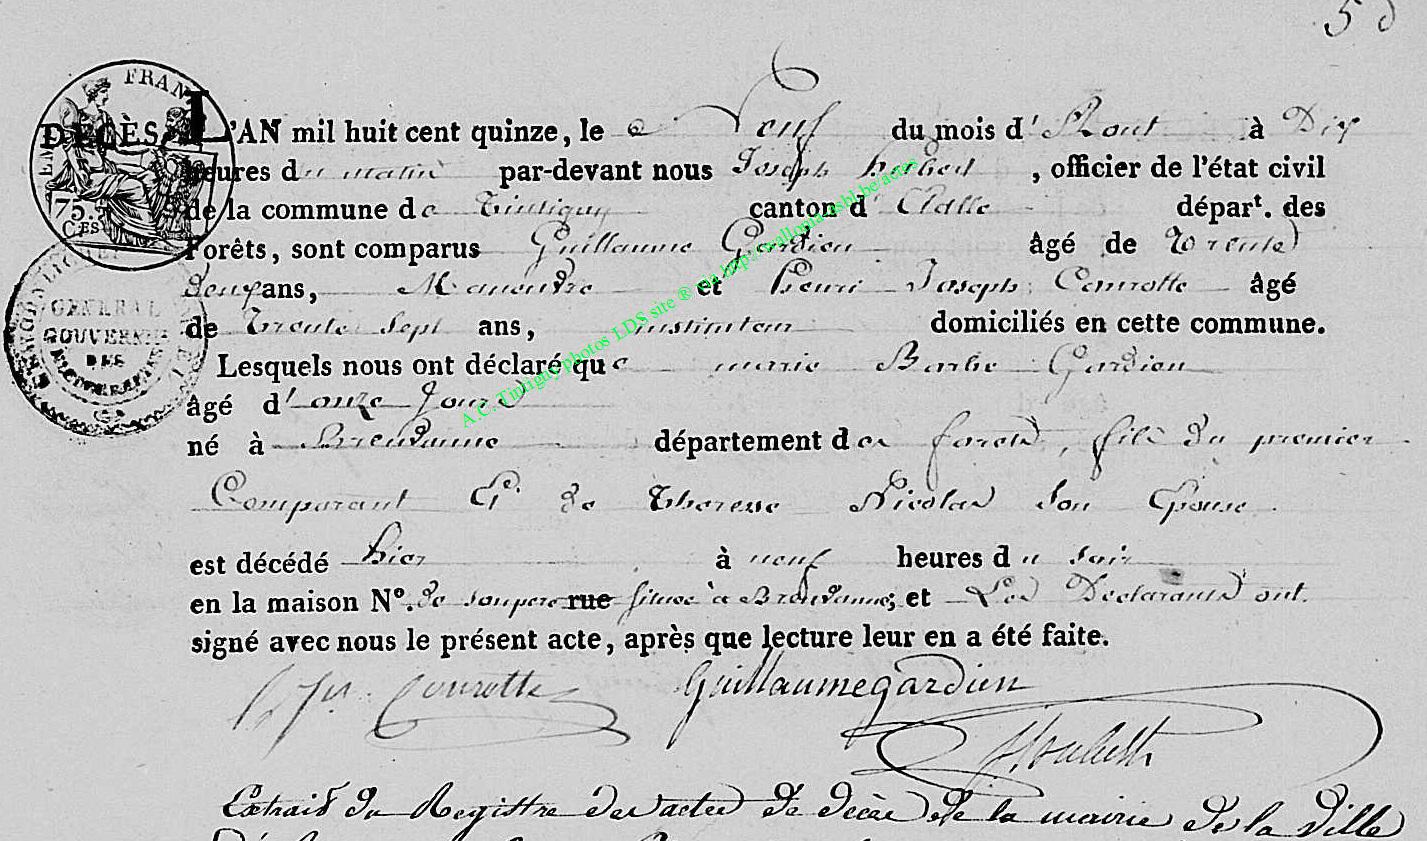 58
FRAN
75.
CES
GENERAL
GOUVERN
DES
DECÈS. L'AN mil huit cent quinze, le Neuf du mois d'Aout à Dix
heures du matin par-devant nous Joseph , officier de l'état civil
de la commune de Tintigny canton d'Etalle dépar^t. des
Forêts, sont comparus Guillaume Gardien âgé de trente
Deux ans, Manœuvre et henri Joseph Conrotte âgé
de trente Sept ans, instituteur domiciliés en cette commune.
Lesquels nous ont déclaré que marie Barbe Gardien
âgé d'onze Jours
né à Breuvanne département des forets, fils du premier
Comparant Et de Therese Nicolas Son Epouse
est décédé hier à neuf heures du soir
en la maison N°. de son pere rue située à Breuvanne; et Les Declarants ont
signé avec nous le présent acte, après que lecture leur en a été faite.
h. Jh. Conrotte Guillaume gardien
Extrait du Registre des actes de décès de la mairie de la Ville
A.C. Tintigny photos LDS site ® via http://wallonia-asbl.be/actes